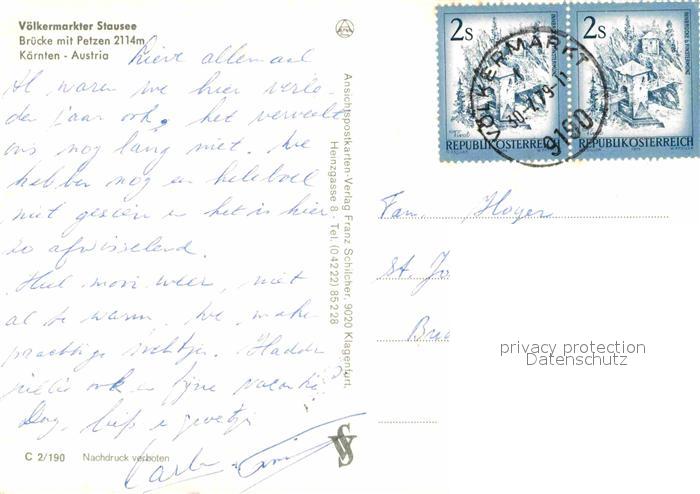 Völkermarkter Stausee
Brücke mit Petzen 2114m
Kärnten - Austria
Lieve allemaal
Al waren we hier verle-
den jaar ook, het verveelt
ons nog lang niet. We
hebben nog een heleboel
niet gezien en het is hier
zo afwisselend.
Heel mooi weer, niet
al te warm. We maken
prachtige tochtjes. Hadden
jullie ook een fijne vakantie?
Dag, liefs en groetjes
C 2/190 Nachdruck verboten
Ansichtspostkarten-Verlag Franz Schilcher, 9020 Klagenfurt,
Heinzgasse 8 - Tel. (0 42 22) 85 2 28
2s
REPUBLIK ÖSTERREICH
2s
REPUBLIK ÖSTERREICH
VÖLKERMARKT
9100
Fam. Hoyer
St. Jo
privacy protection
Datenschutz